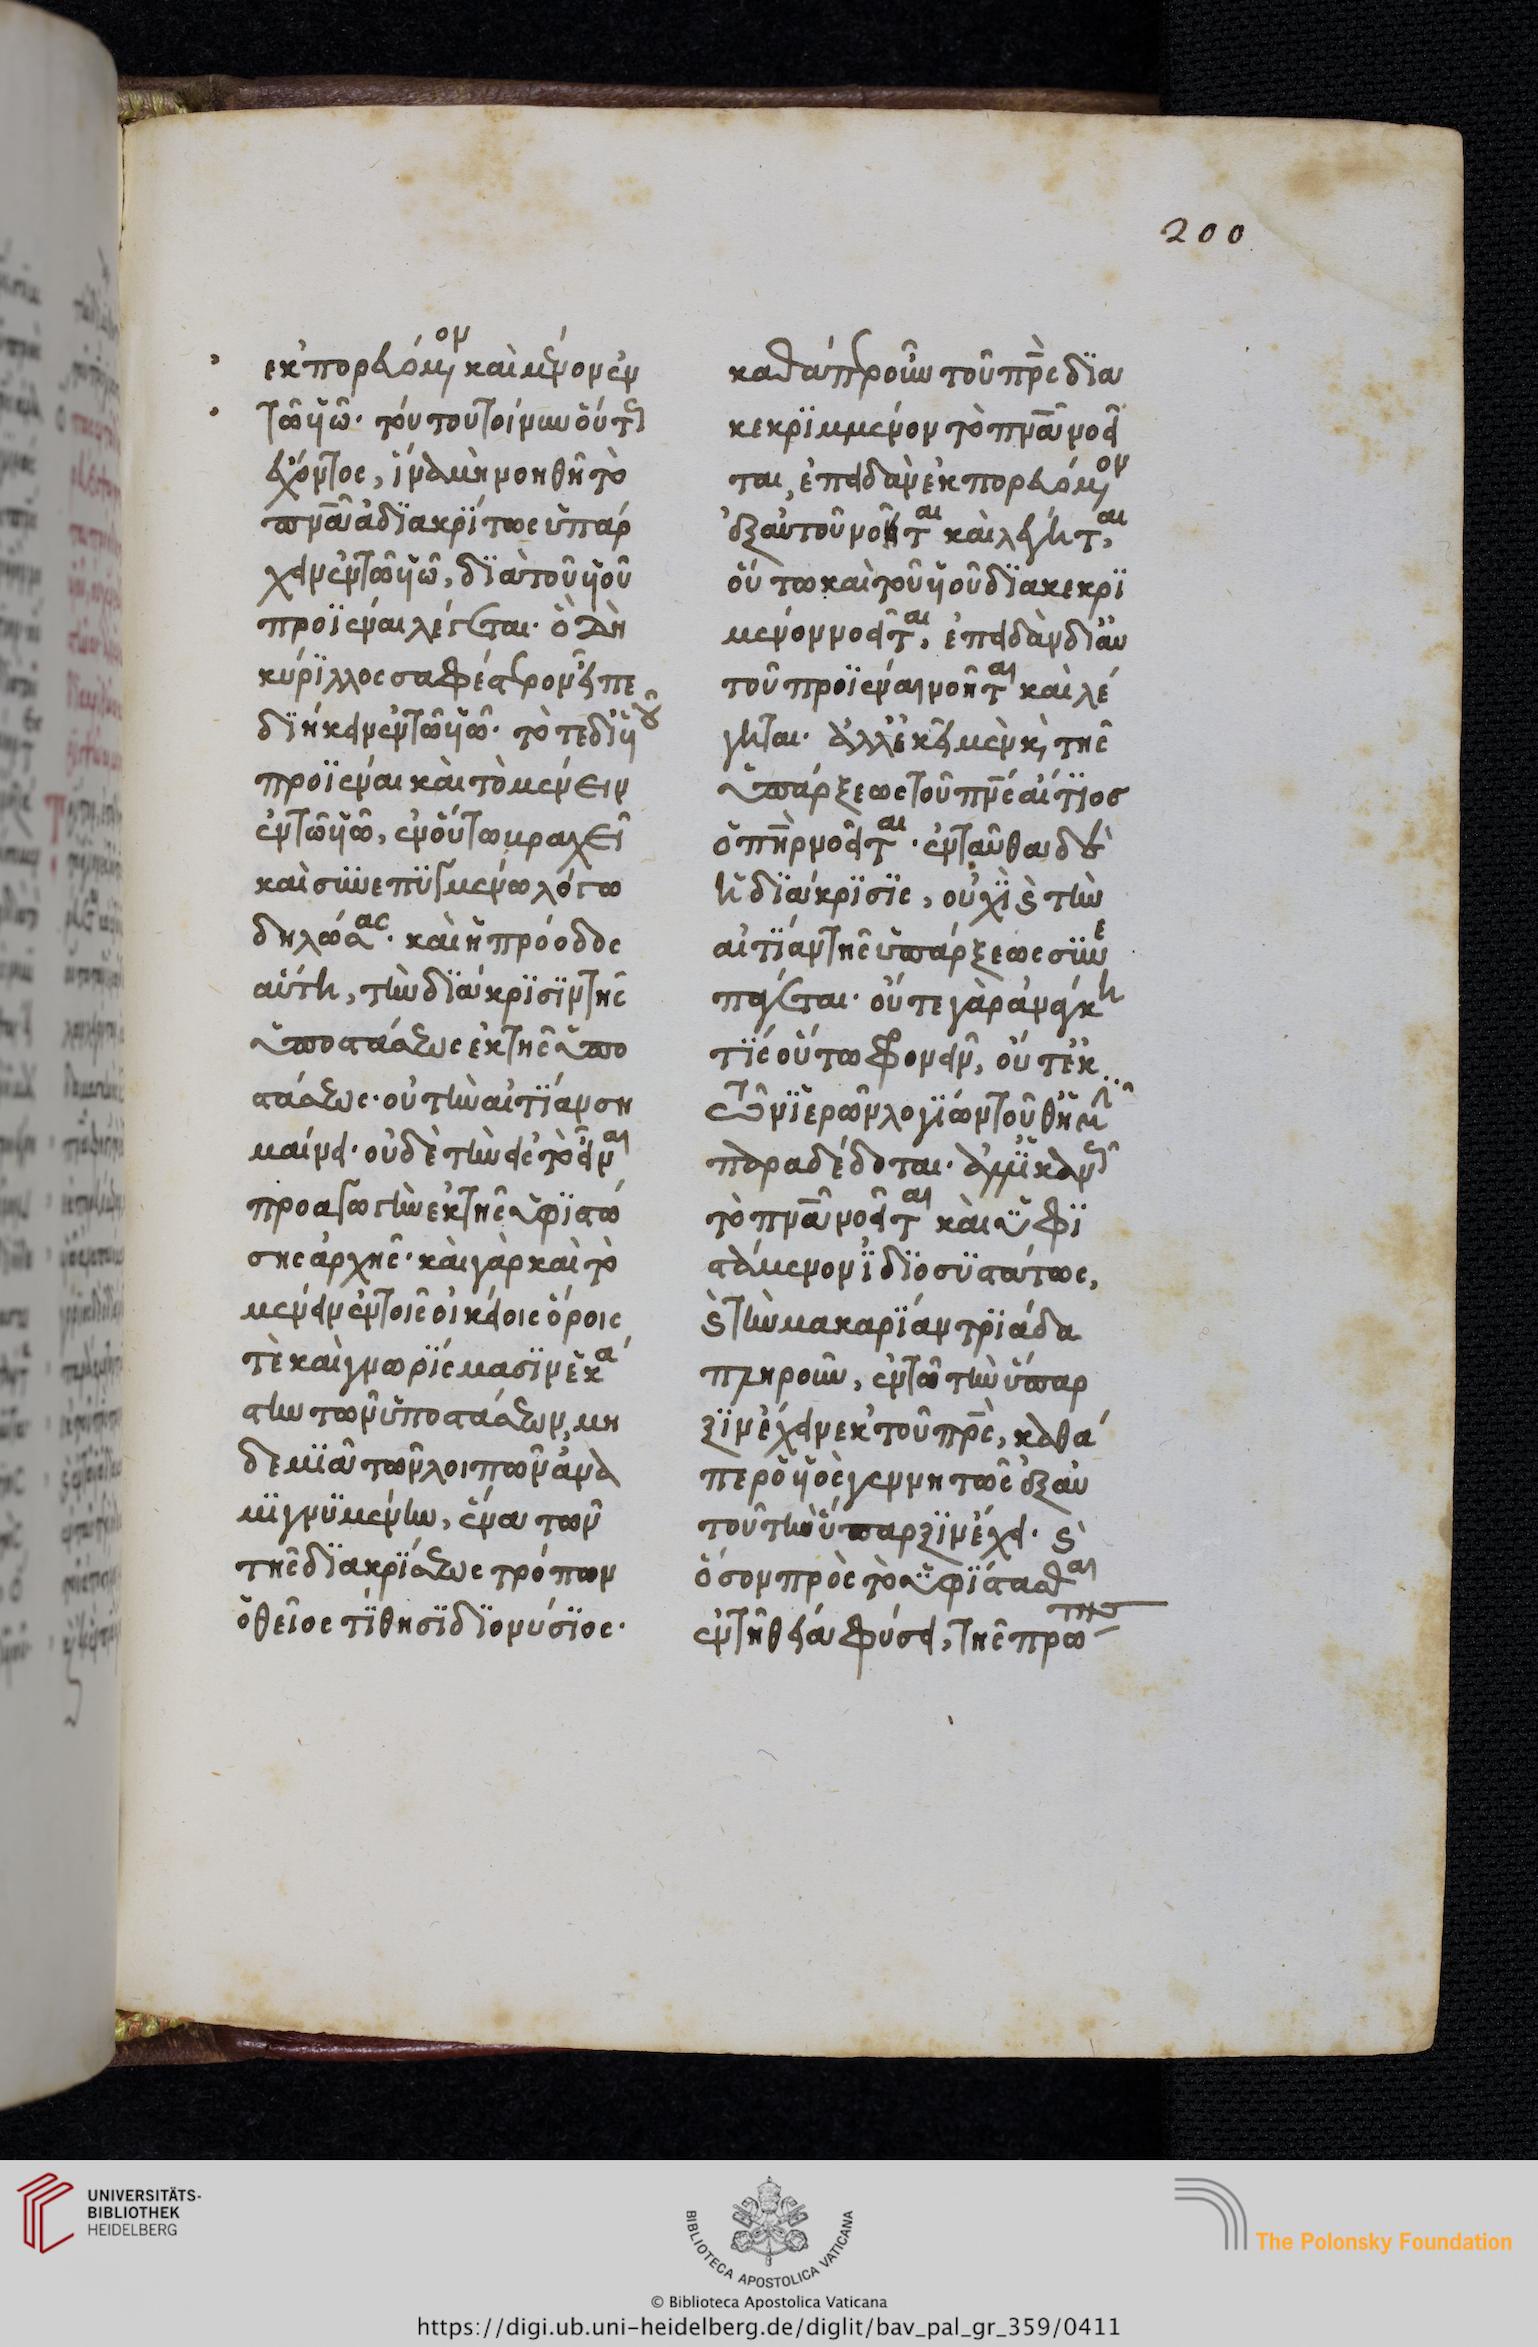 200
ἐκπορευόμενον καὶ μένον ἐν
τῶ υἱῶ· τούτου τοίνυν οὕτως
ἔχοντος, ἵνα μὴ νοηθῆ τὸ
πνα ἀδιακρίτως ὑπάρ
χειν ἐν τῶ υἱῶ, διὰ τοῦ υἱοῦ
προϊέναι λέγεται· ὃ δὴ
κύριλλος σαφέστερον
τὸ τε δι' υἱοῦ
προϊέναι καὶ τὸ μένειν
ἐν τῶ υἱῶ, ἐν οὕτω βραχεῖ
καὶ συνεπτυγμένω λόγω
δηλώσας· καὶ ἡ πρόοδος
αὕτη, τὴν διάκρισιν τῆς
ὑποστάσεως ἐκ τῆς ὑπο
στάσεως· οὐ τὴν αἰτίαν ση
μαίνει· οὐδὲ τὴν εἰς τὸ εἶναι
προαγωγὴν ἐκ τῆς ὑφιστώ
σης ἀρχῆς· καὶ γὰρ καὶ τὸ
μένειν ἐν τοῖς οἰκείοις ὅροις
τὲ καὶ γνωρίσμασιν ἑκά
στην τῶν ὑποστάσεων, μη
δεμιᾶ τῶν λοιπῶν ἀνα
μιγνυμένην, ἕνα τῶν
τῆς διακρίσεως τρόπων
ὁ θεῖος τίθησι διονύσιος·
καθάπερ οὖν τοῦ πρς δια
κεκριμμένον τὸ πνα νοεῖ
ται, ἐπειδὰν ἐκπορευόμενον
ἐξ αὐτοῦ νοῆται καὶ λέγηται,
οὕτω καὶ τοῦ υἱοῦ διακεκρι
μένον νοεῖται, ἐπειδὰν δι' αὐ
τοῦ προϊέναι νοῆται καὶ λέ
γηται· ἀλλ' ἐκεῖ μὲν καὶ τῆς
ὑπάρξεως τοῦ πνς αἴτιος
ὁ πηρ νοεῖται· ἐνταῦθα δὲ
ἡ διάκρισις, οὐχὶ καὶ τὴν
αἰτίαν τῆς ὑπάρξεως συνε
πάγεται· οὔτε γὰρ ἀνάγκη
τις οὕτω φρονεῖν, οὔτ' ἐκ
τῶν ἱερῶν λογίων τοῦθ' ἡμῖν
παραδέδοται·
τὸ πνα νοεῖται καὶ ὑφι
στάμενον ἰδιοσυστάτως,
καὶ τὴν μακαρίαν τριάδα
πληροῦν, ἐν τῶ τὴν ὕπαρ
ξιν ἔχειν ἐκ τοῦ πρς, καθά
περ ὁ υἱὸς γεννητῶς ἐξ αὐ
τοῦ τὴν ὕπαρξιν ἔχει· καὶ
ὅσον πρὸς τὸ ὑφίστασθαι
ἐν τῆ θεία φύσει, τῆς πρώτης
UNIVERSITÄTS-
BIBLIOTHEK
HEIDELBERG
BIBLIOTECA APOSTOLICA VATICANA
The Polonsky Foundation
© Biblioteca Apostolica Vaticana
https://digi.ub.uni-heidelberg.de/diglit/bav_pal_gr_359/0411